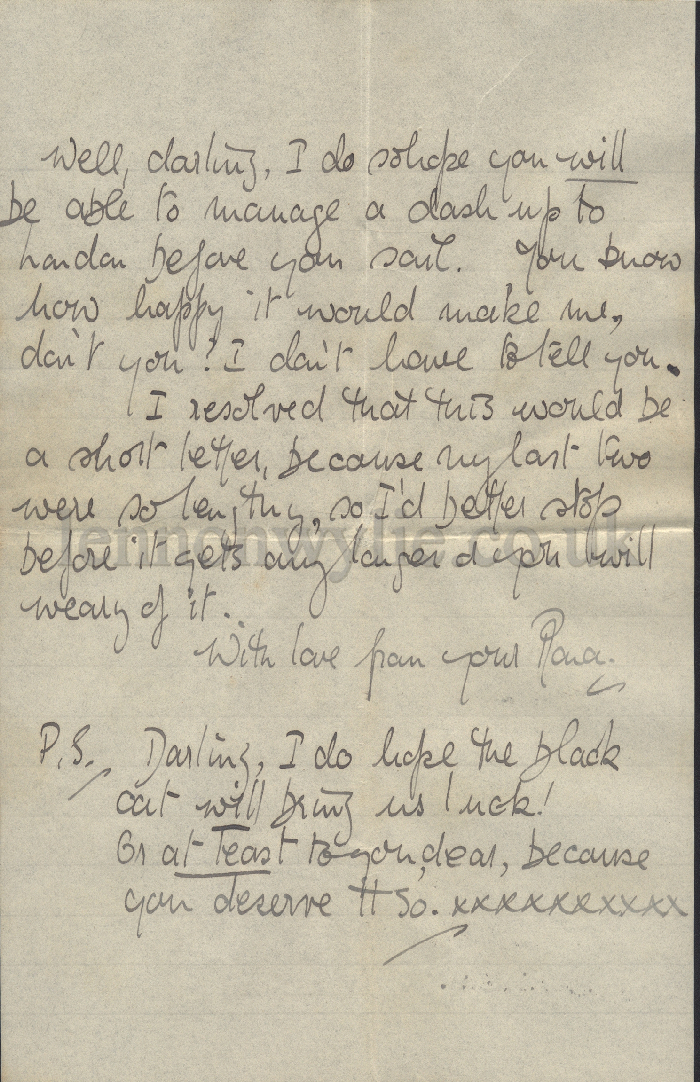 Well, darling, I do so hope you will
be able to manage a dash up to
London before you sail. You know
how happy it would make me,
don't you? I don't have to tell you.
I resolved that this would be
a short letter, because my last two
were so lengthy, so I'd better stop
before it gets any longer & you will
weary of it.
With love from your Rona.
P.S. Darling, I do hope the black
cat will bring us luck!
Or at least to you, dear, because
you deserve it so. xxxxxxxxxxx
lennonwylie.co.uk